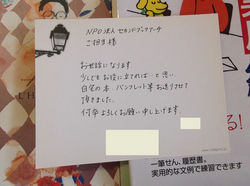 NPO法人 セカンドブックアーチ
ご担当様
お世話になります
少しでもお役に立てればと思い
自宅の本、パンフレット等 お送りさせて
頂きました。
何卒よろしくお願い申し上げます。
一筆せん、履歴書、
実用的な文例で練習できます